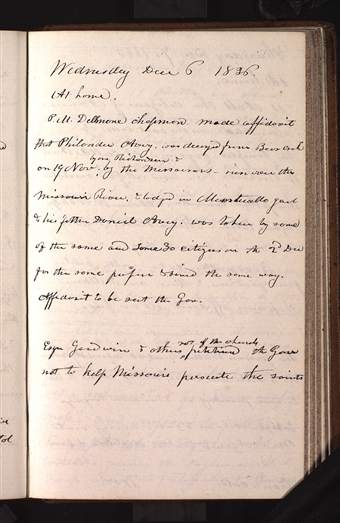 Wednesday Dec 6 1836.
(At home.
P.M. Delmore Chapman made affidavit
that Philander Avery, was decoyed from Bear Creek
by
on 19 Nov. by the Missourians. run over the
Missouri River, & lodged in Monticello gaol
& his father Daniel Avery. was taken by some
of the same and some 30 citizens on the 2d Dec
for the same purpose & the same way.
Affidavit to be sent the Gov.
not of the church
Esqr Goodwin & others petitioned the Gov
not to help Missouri persecute the saints